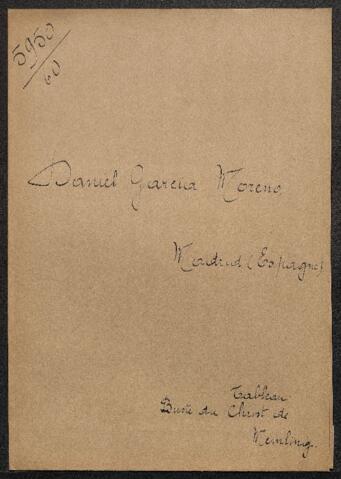 5950/60
Daniel Garcia Moreno.
Madrid (Espagne)
Tableau
Buste du Christ de
Memling.